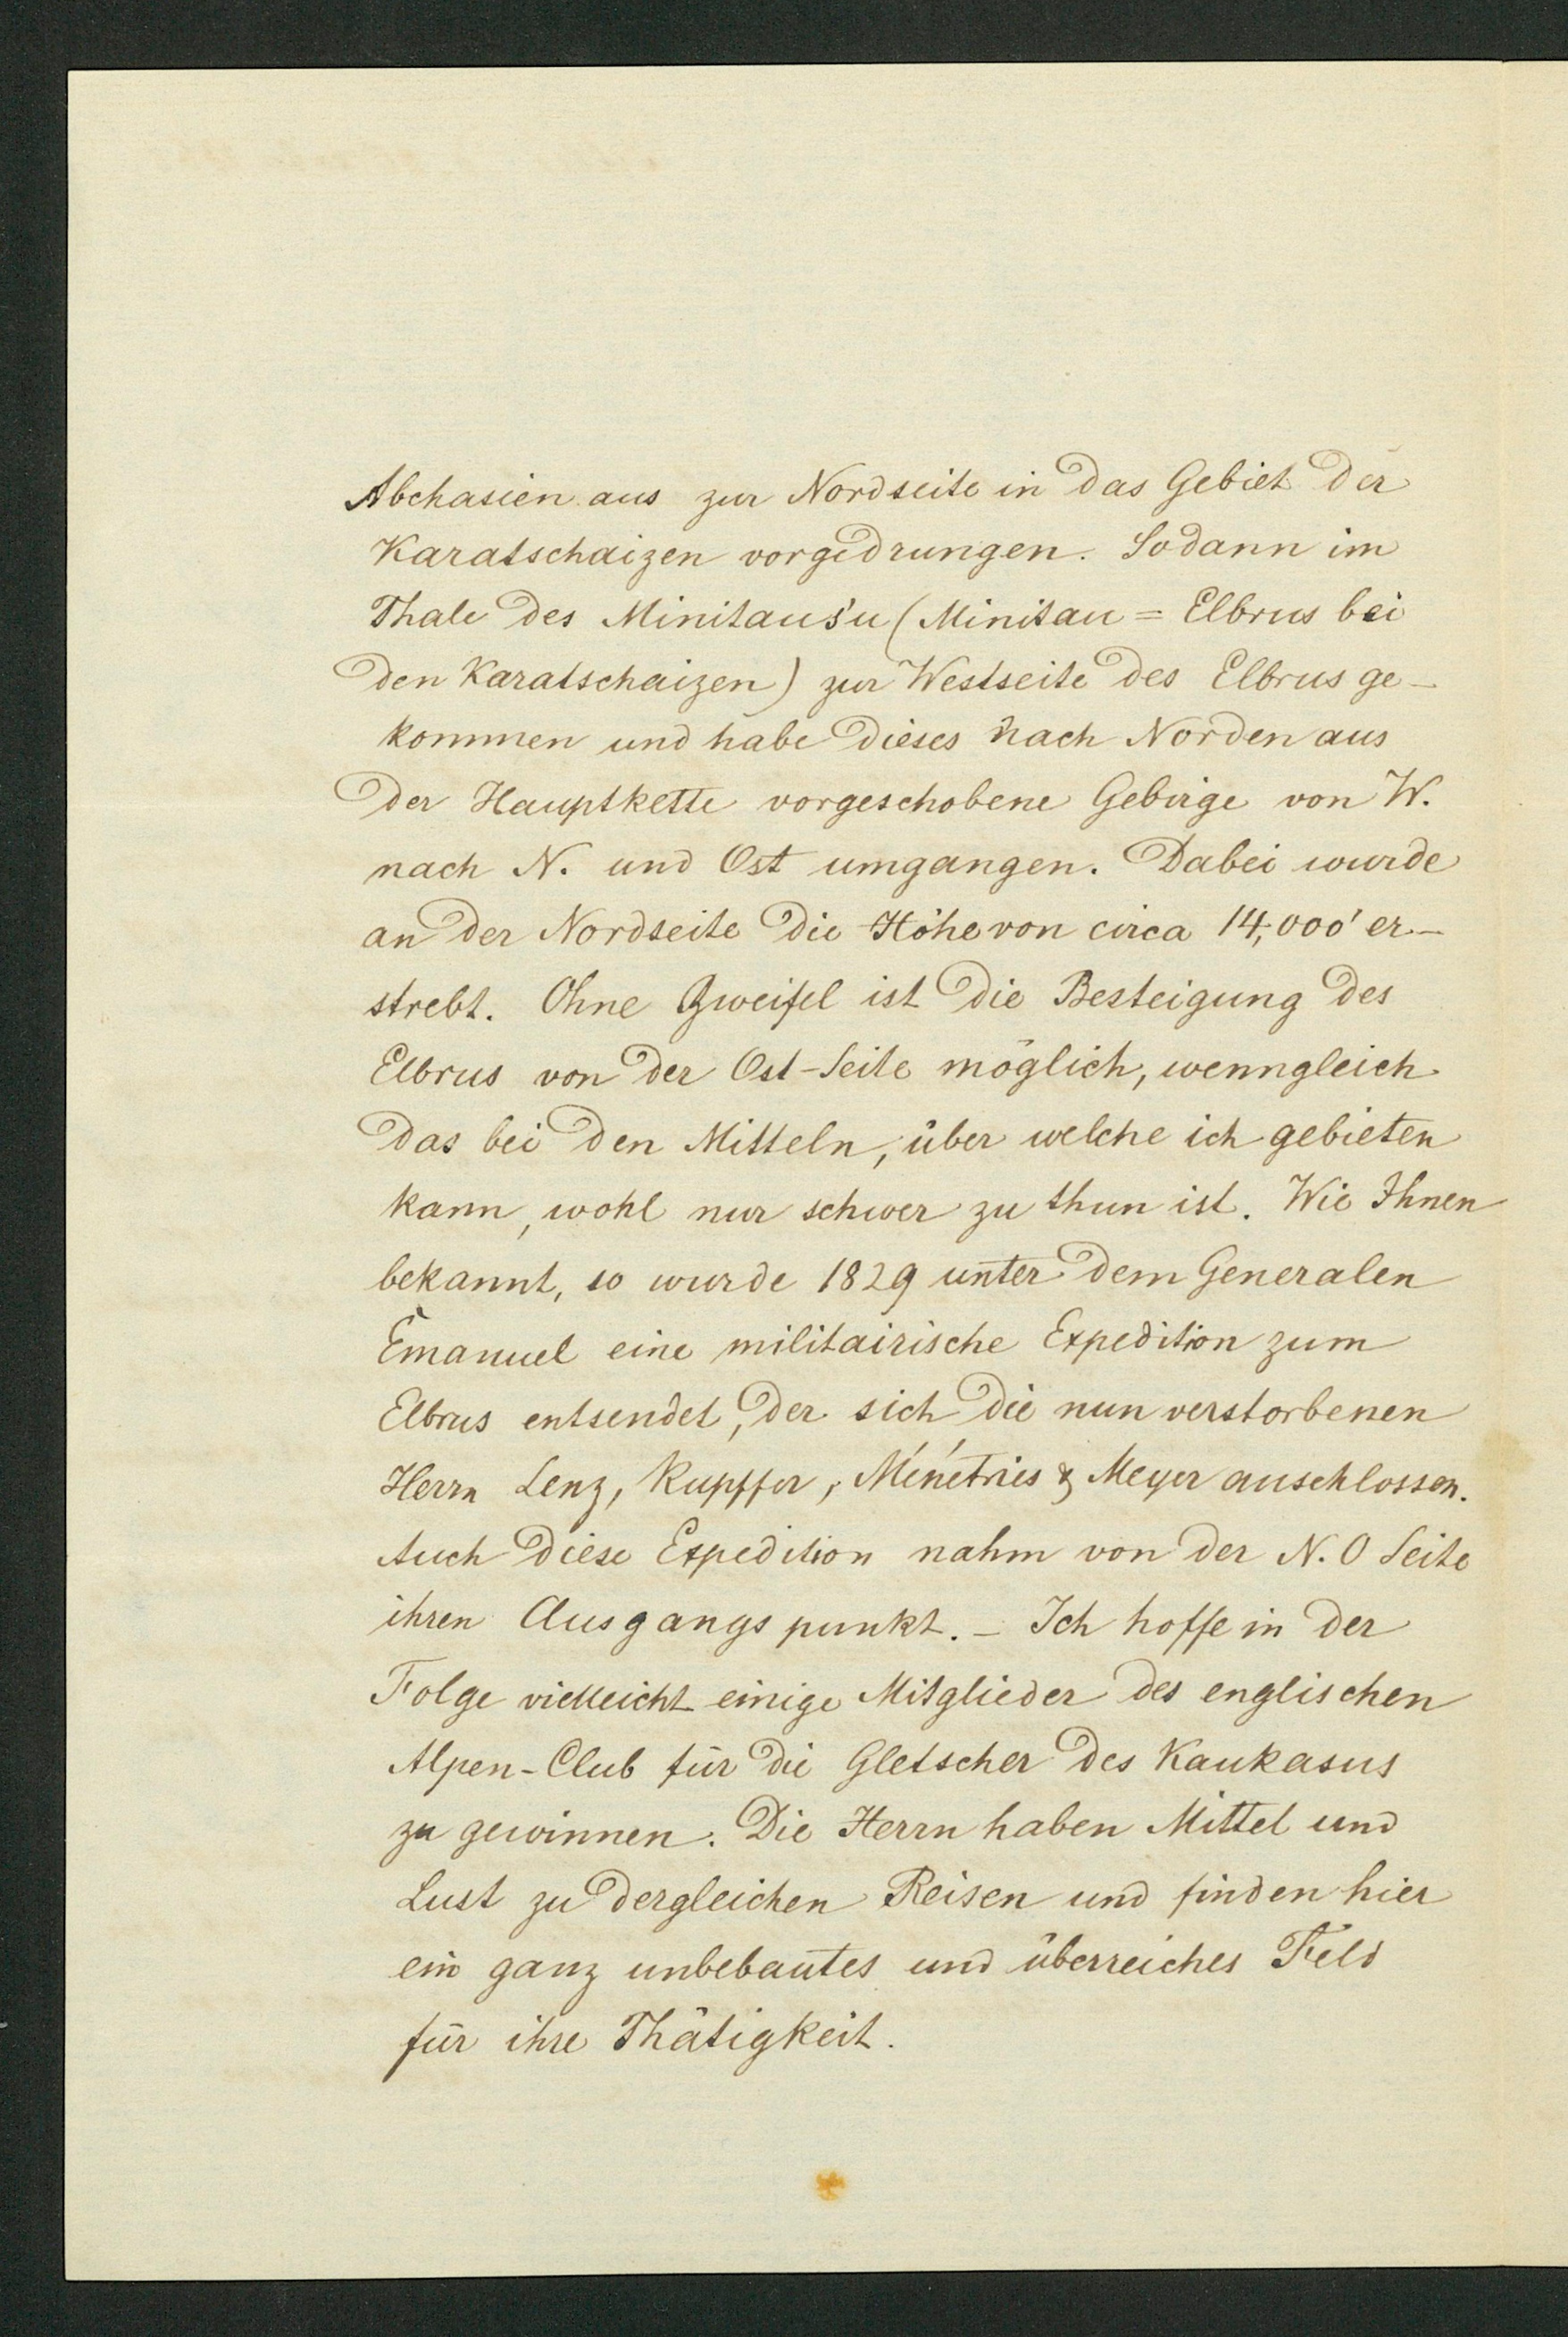 Abchasien aus zur Nordseite in das Gebiet der
Karatschaizen vorgedrungen. Sodann im
Thale des Minitaus'u (Minitau = Elbrus bei
den Karatschaizen) zur Westseite des Elbrus ge-
kommen und habe dieses nach Norden aus
der Hauptkette vorgeschobene Gebirge von W.
nach N. und Ost umgangen. Dabei wurde
an der Nordseite die Höhe von circa 14,000' er-
strebt. Ohne Zweifel ist die Besteigung des
Elbrus von der Ost-Seite möglich, wenngleich
das bei den Mitteln, über welche ich gebieten
kann, wohl nur schwer zu thun ist. Wie Ihnen
bekannt, so wurde 1829 unter dem Generalen
Emanuel eine militairische Expedition zum
Elbrus entsendet, der sich die nun verstorbenen
Herrn Lenz, Kupffer, Ménétries & Meyer anschlossen.
Auch diese Expedition nahm von der N. O Seite
ihren Ausgangspunkt. - Ich hoffe in der
Folge vielleicht einige Mitglieder des englischen
Alpen-Club für die Gletscher des Kaukasus
zu gewinnen. Die Herrn haben Mittel und
Lust zu dergleichen Reisen und finden hier
ein ganz unbebautes und überreiches Feld
für ihre Thätigkeit.